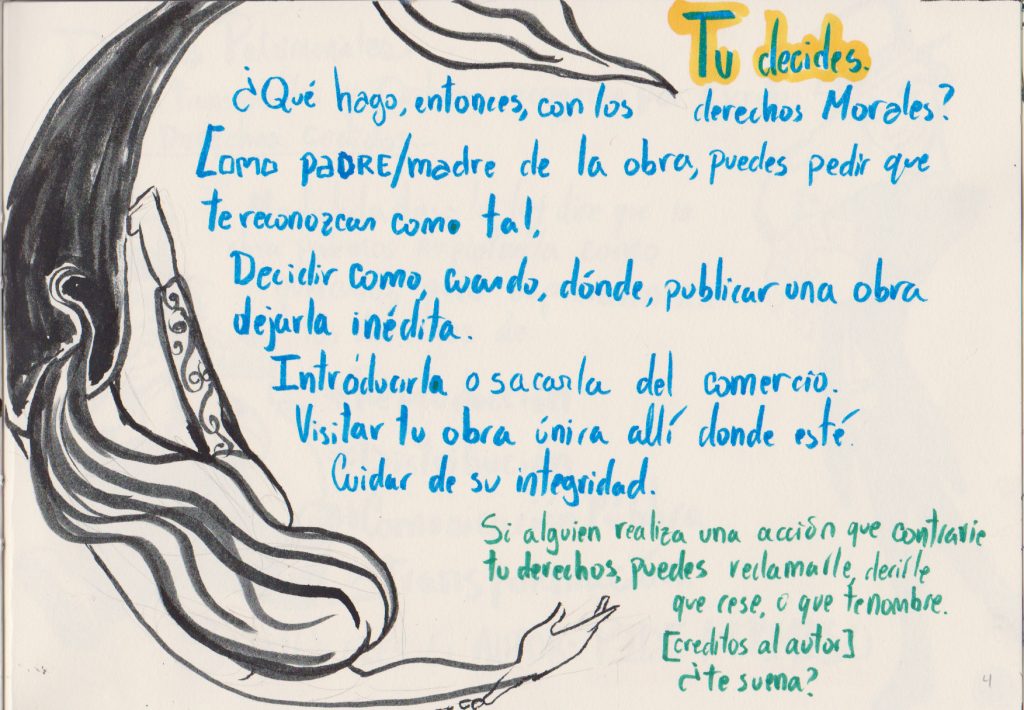 Tu decides.
¿Qué hago, entonces, con los derechos Morales?
Como PADRE/madre de la obra, puedes pedir que
te reconozcan como tal,
Decidir como, cuando, dónde, publicar una obra
dejarla inédita.
Introducirla o sacarla del comercio.
Visitar tu obra única allí donde esté.
Cuidar de su integridad.
Si alguien realiza una acción que contrarie
tu derechos, puedes reclamarle, decirle
que cese, o que te nombre.
[creditos al autor]
¿te suena?
4